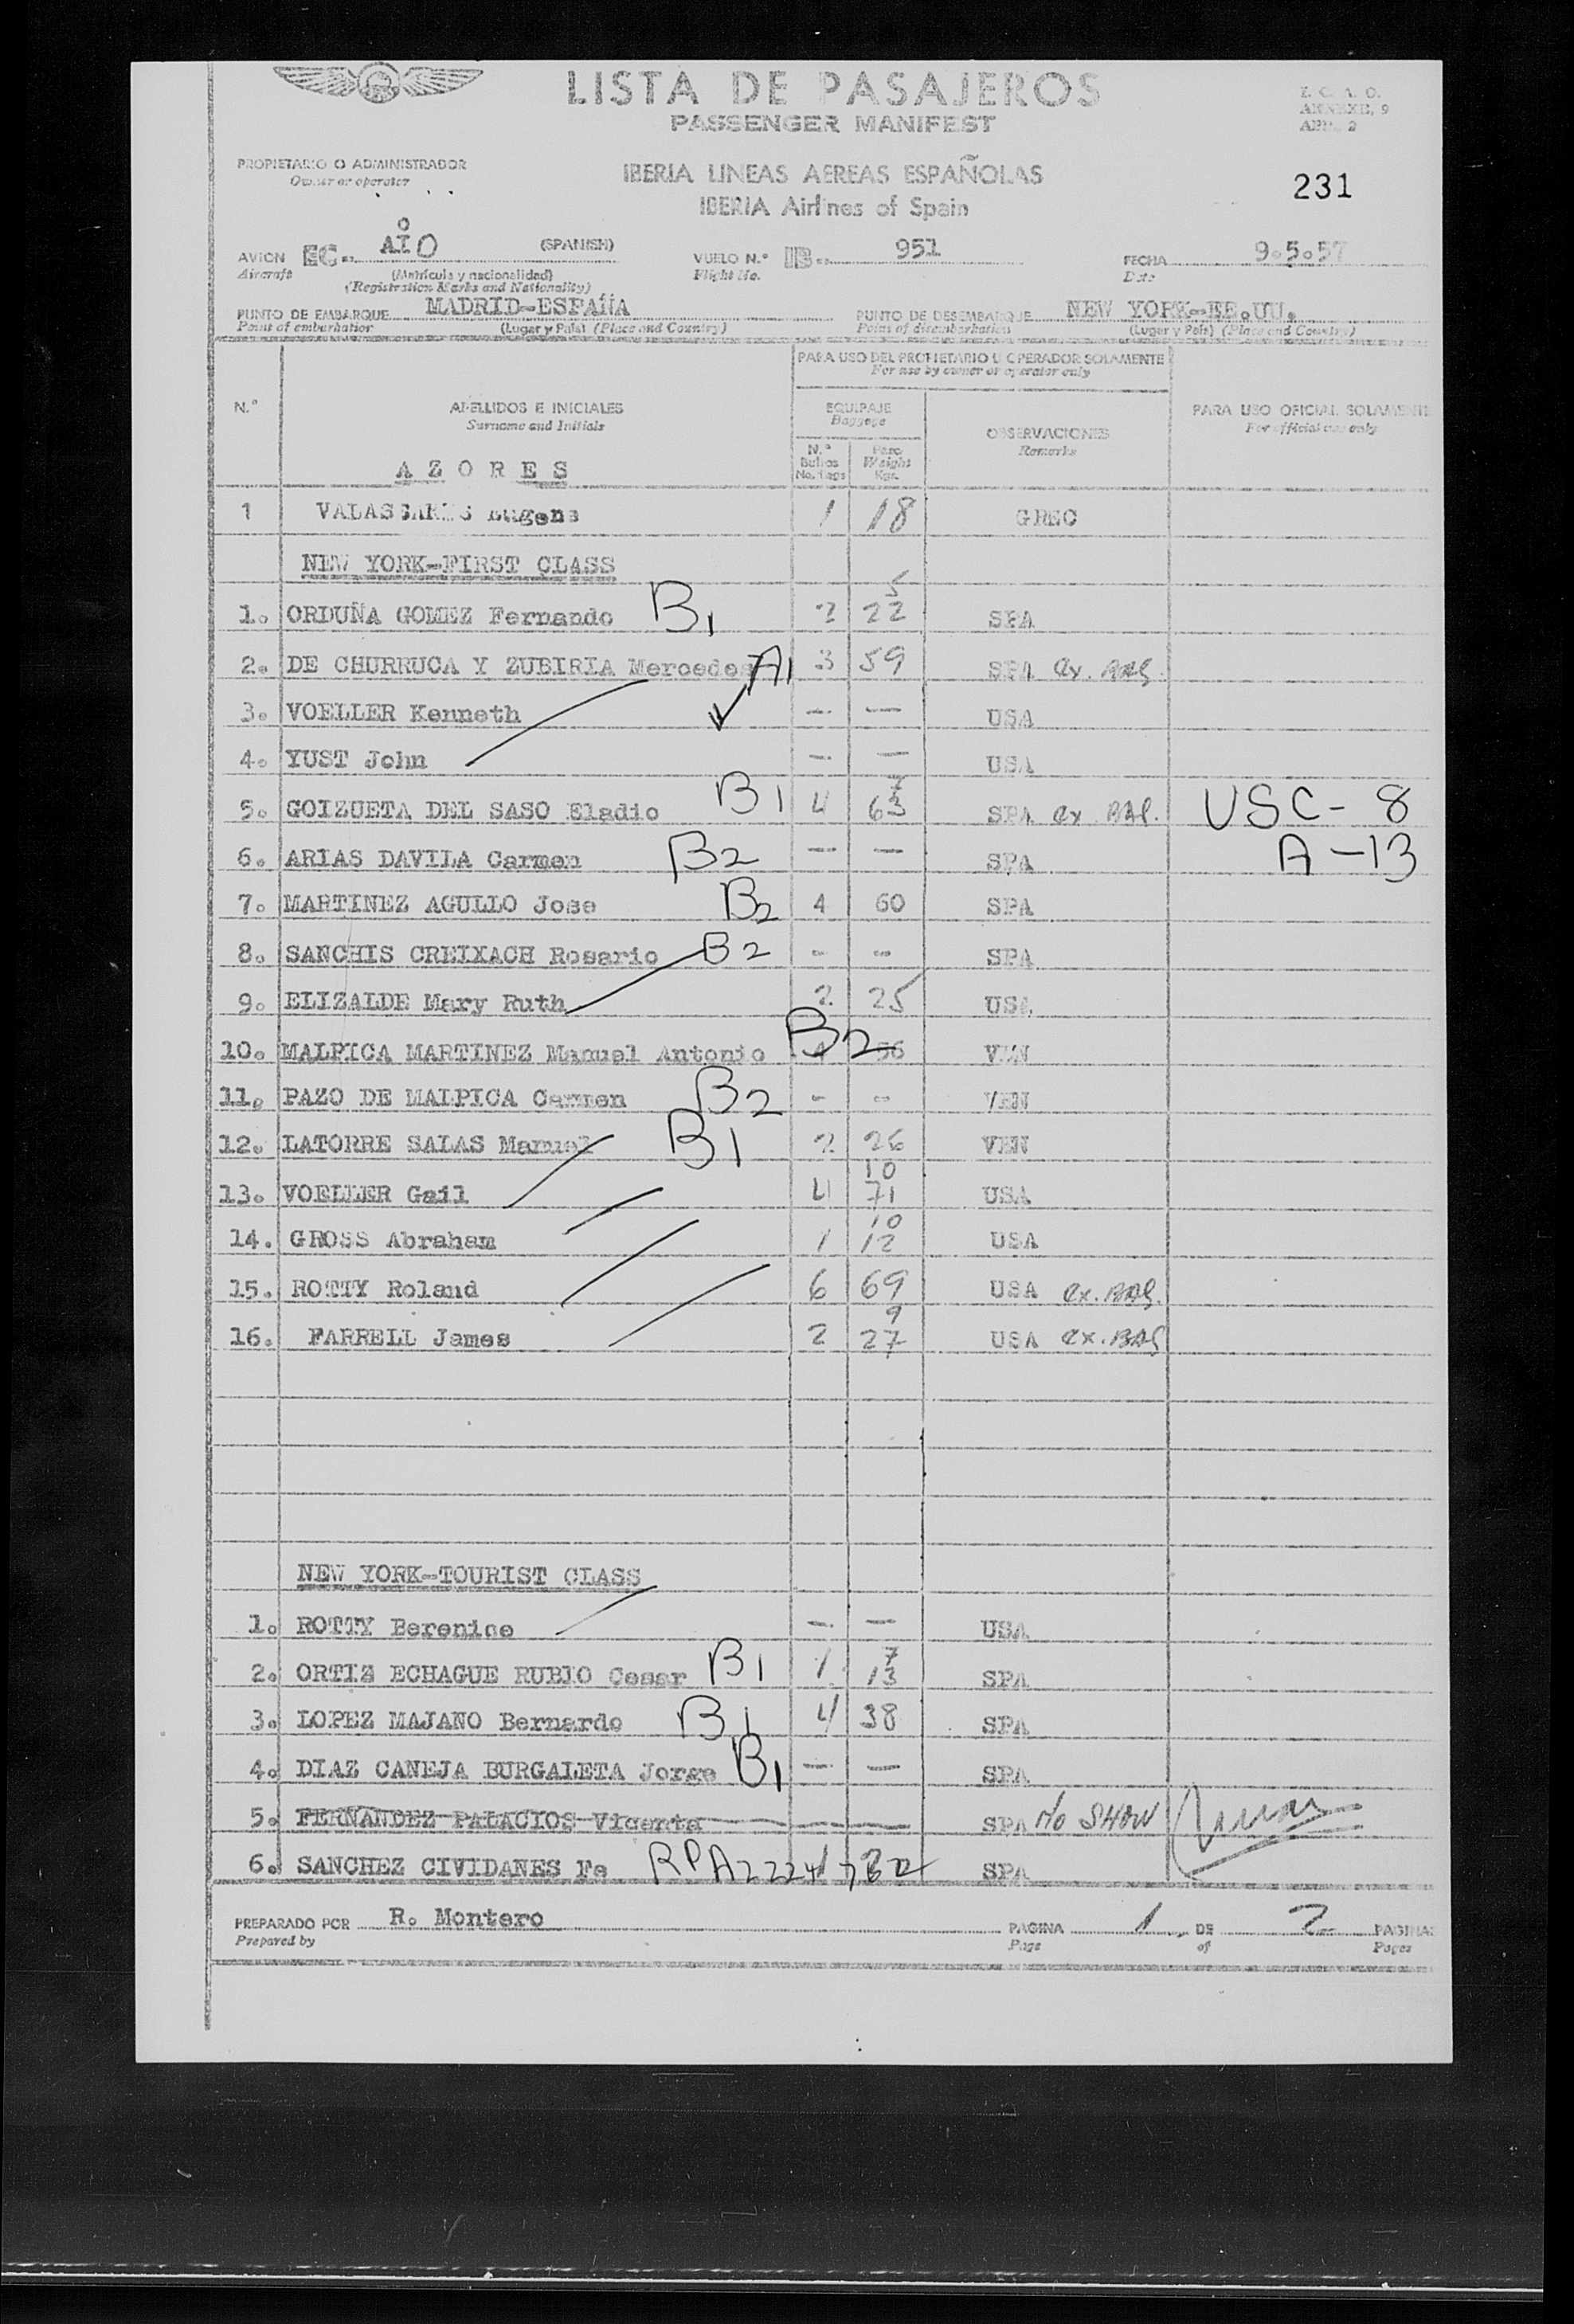 LISTA DE PASAJEROS
PASSENGER MANIFEST
I. C. A. O.
ANNEXE, 9
APP. 2
PROPIETARIO O ADMINISTRADOR
Owner or operator
IBERIA LINEAS AEREAS ESPAÑOLAS
IBERIA Airlines of Spain
231
AVION EC- AIO (SPANISH) VUELO N.º IB- 951 FECHA 9.5.57
Aircraft (Matrícula y nacionalidad) Flight No. Date
(Registration Marks and Nationality)
PUNTO DE EMBARQUE MADRID-ESPAÑA PUNTO DE DESEMBARQUE NEW YORK-EE.UU.
Point of embarkation (Lugar y País) (Place and Country) Point of disembarkation (Lugar y País) (Place and Country)
PARA USO DEL PROPIETARIO U OPERADOR SOLAMENTE
For use by owner or operator only
N.º APELLIDOS E INICIALES EQUIPAJE OBSERVACIONES PARA USO OFICIAL SOLAMENTE
Surname and Initials Baggage Remarks For official use only
N.º Bultos No. bags Peso Weight Kgr.
AZORES
1 1 18 GREC
NEW YORK-FIRST CLASS
5
1. ORDUÑA GOMEZ Fernando B1 2 22 SPA
2. DE CHURRUCA Y ZUBIRIA Mercedes A1 3 59 SPA ex. BAG.
3. VOELLER Kenneth ✓ — — USA
4. YUST John — — USA
7
5. GOIZUETA DEL SASO Eladio B1 4 63 SPA ex BAG. USC-8
6. ARIAS DAVILA Carmen B2 — — SPA A-13
7. MARTINEZ AGULLO Jose B2 4 60 SPA
8. SANCHIS CREIXACH Rosario B2 - - SPA
9. ELIZALDE Mary Ruth 2 25 USA
10. MALPICA MARTINEZ Manuel Antonio B2 56 VEN
11. PAZO DE MALPICA Carmen B2 - - VEN
12. LATORRE SALAS Manuel B1 2 26 VEN
10
13. VOELLER Gail 4 71 USA
10
14. GROSS Abraham 1 12 USA
15. ROTTY Roland 6 69 USA ex. BAG.
9
16. FARRELL James 2 27 USA ex. BAG
NEW YORK-TOURIST CLASS
1. ROTTY Berenice — — USA
7
2. ORTIZ ECHAGUE RUBIO Cesar B1 1 13 SPA
3. LOPEZ MAJANO Bernardo B1 4 38 SPA
4. DIAZ CANEJA BURGALETA Jorge B1 — — SPA
5. FERNANDEZ PALACIOS Vicenta SPA NO SHOW
6. SANCHEZ CIVIDANES Fe SPA
PREPARADO POR R. Montero PAGINA 1 DE 2 PAGINAS
Prepared by Page of Pages